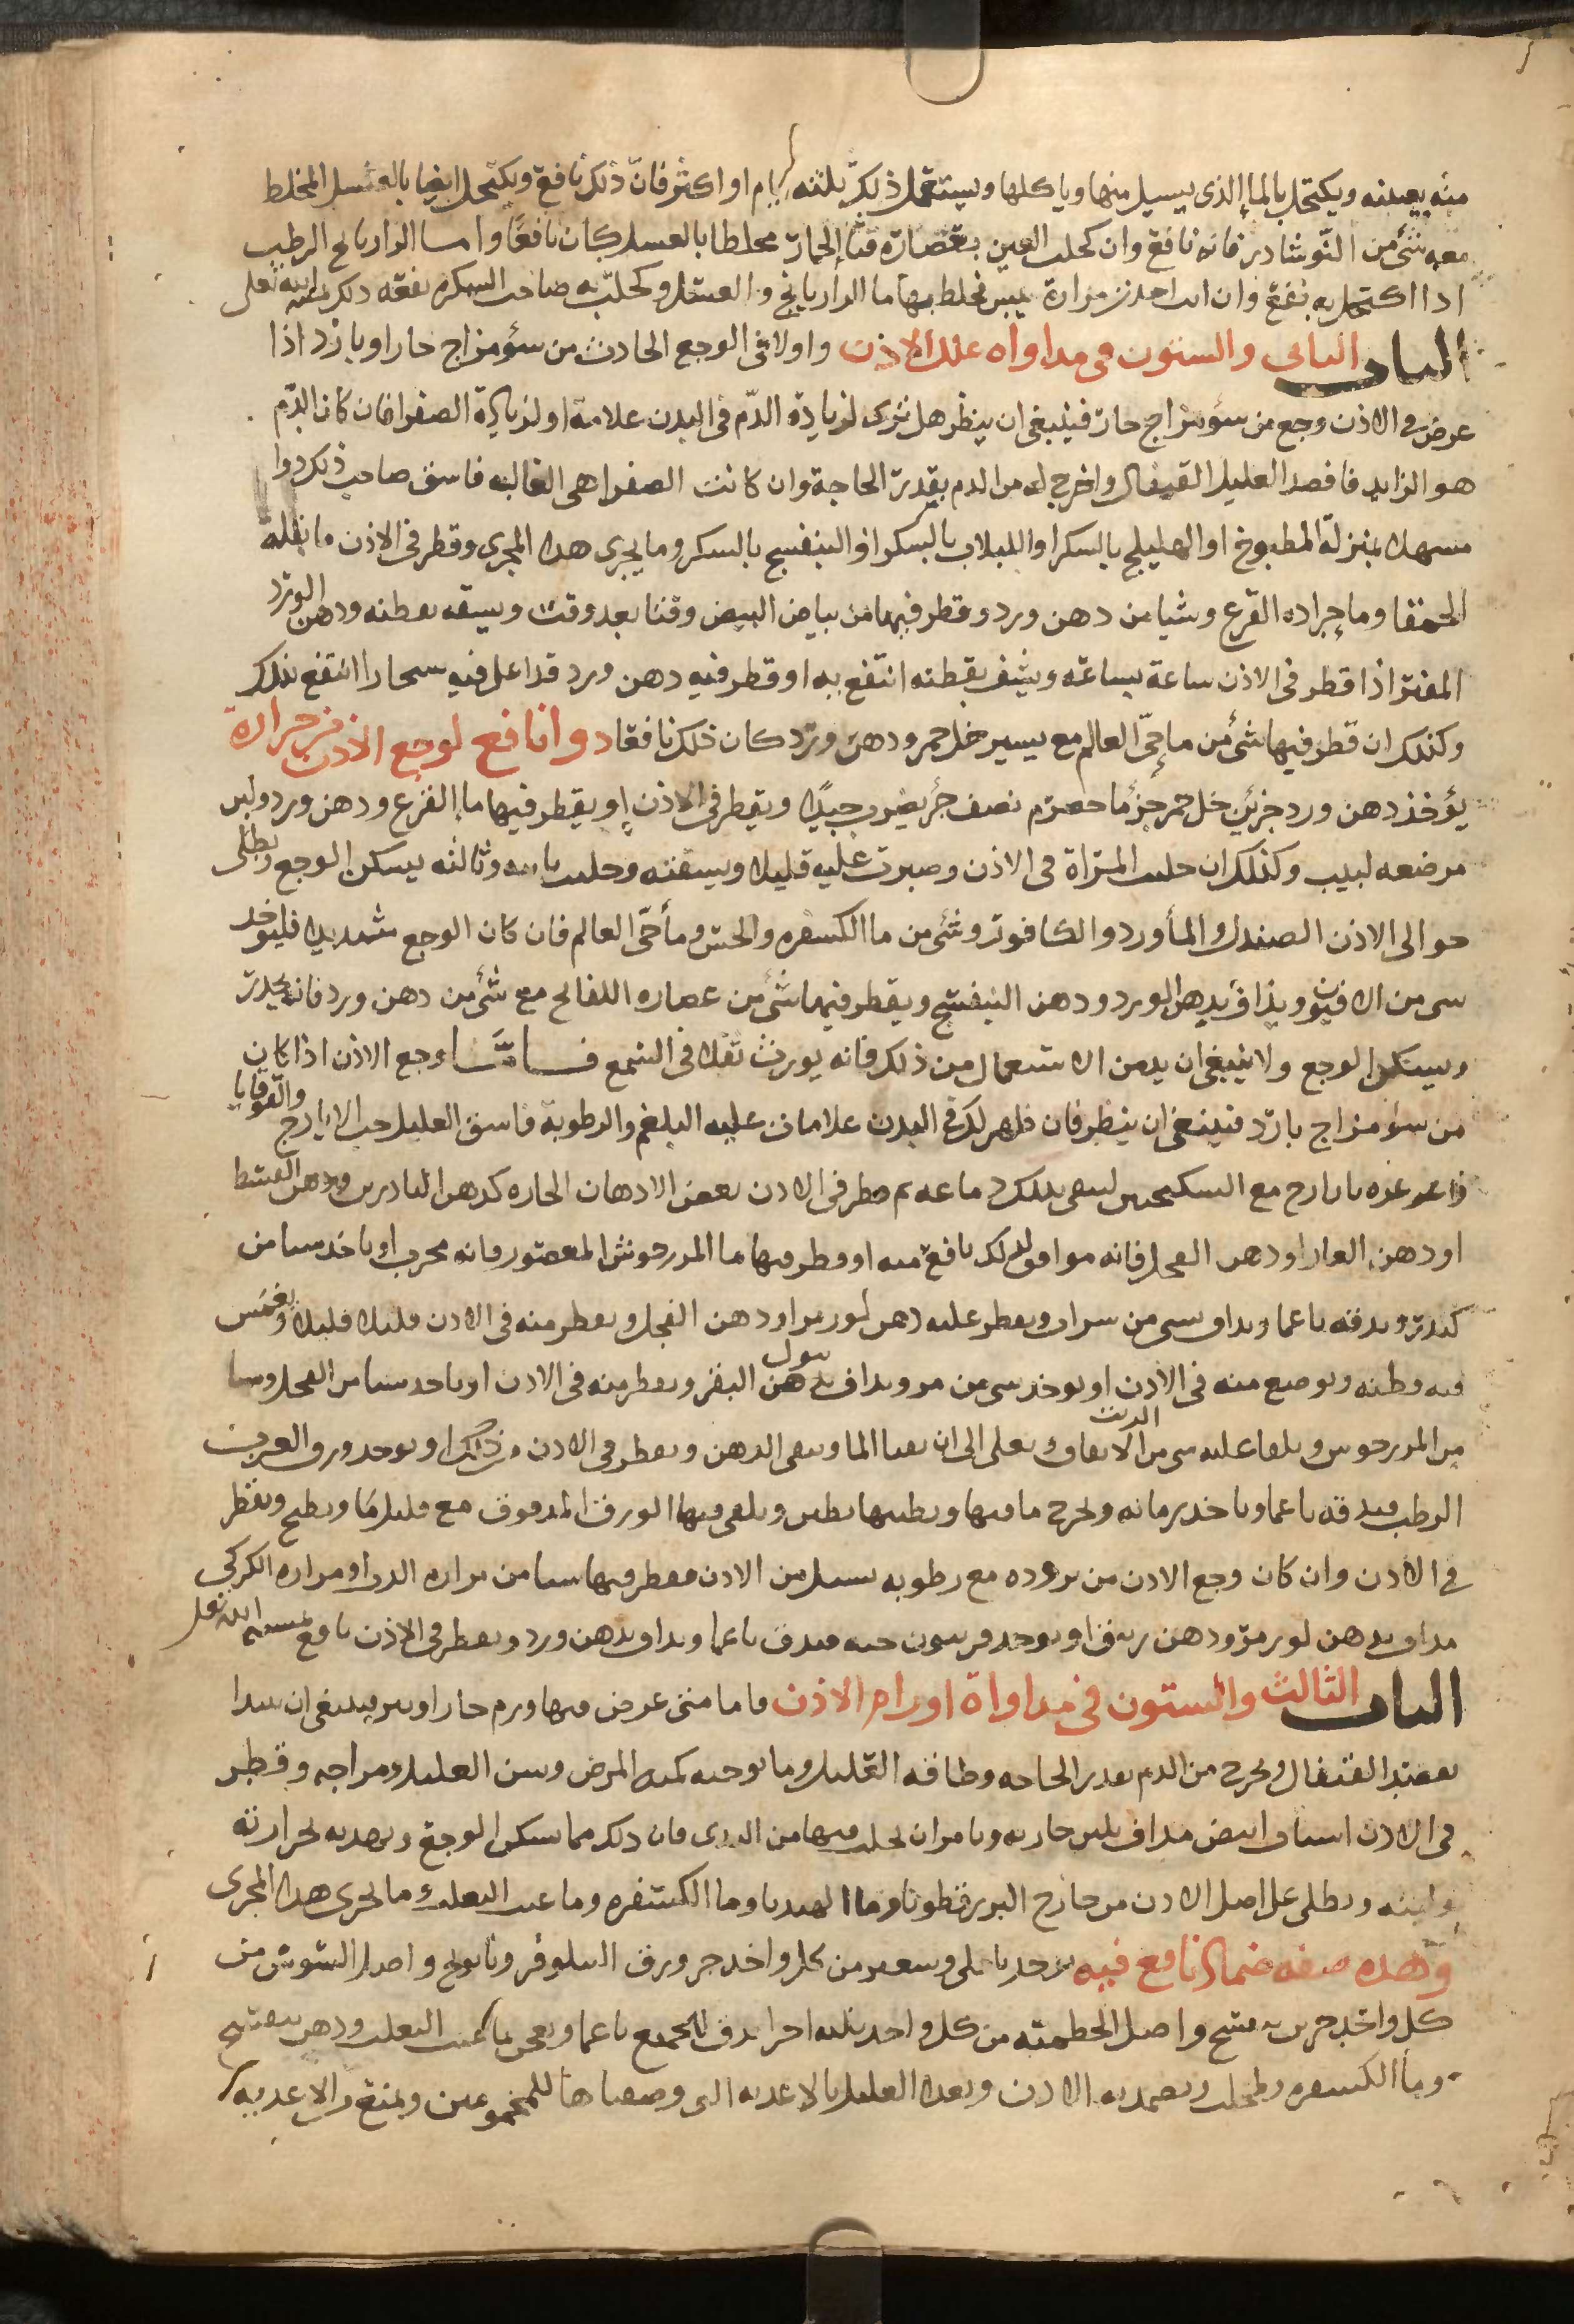 منه بعينه ويكتحل بالما الذى يسيل منها وياكلها ويستعمل ذلك ثلثه ايام او اكثر فان ذلك نافع ويكتحل ايضا بالعسل المخلط
معه شئ من النوشادر فانه نافع وان كحلت العين بعصارة قثا الحمار مخلطا بالعسل كان نافعا واما الرازيانج الرطب
اذا اكتحل به نفع وان انت اخذت مرارة تيس فخلط بها ما الرازيانج والعسل وكحلت به صاحب السكره نفعه ذلك بمشية الله تعلى
الباب الثانى والستون فى مداواه علل الاذن واولا فى الوجع الحادث من سؤ مزاج حار او بارد اذا
عرض فى الاذن وجع من سؤ مزاج حار فينبغى ان ينظر هل ترى لزيادة الدم فى البدن علامة او لزيادة الصفرا فان كان الدم
هو الزايد فافصد العليل القيفال واخرج له من الدم بقدر الحاجة وان كانت الصفرا هى الغالبه فاسق صاحب ذلك دوا
مسهلا بمنزلة المطبوخ او الهليلج بالسكر او اللبلاب بالسكر او البنفسج بالسكر وما يجرى هذا المجرى وقطر فى الاذن ما بقلة
الحمقا وما جراده القرع وشيا من دهن ورد وقطر فيها من بياض البيض وقتا بعد وقت وينشفه بقطنه ودهن الورد
المفتر اذا قطر فى الاذن ساعة بساعة وينشف بقطنه انتفع به او قطر فيه دهن ورد قد اغلى فيه انتفع بذلك
وكذلك ان قطر فيها شئ من ما حى العالم مع يسير خل خمر ودهن ورد كان ذلك نافعا دوا نافع لوجع الاذن من حرارة
يؤخذ دهن ورد جزئين خل خمر جزء ما حصرم نصف جزء يضرب جيدا ويقطر فى الاذن او يقطر فيها ما القرع ودهن ورد ولبن
مرضعه لبيب وكذلك ان حلبت المراة فى الاذن وصبرت عليه قليلا ونشفته وحلبت ثانيه وثالثه يسكن الوجع ويطلى
حوالى الاذن الصندل والماورد والكافور وشئ من ما الكسفره والخس وما حى العالم فان كان الوجع شديدا فليؤخذ
شى من الافيون ويذاف بدهن الورد ودهن البنفسج ويقطر فيها شئ من عصاره اللفاح مع شئ من دهن ورد فانه يخدر
ويسكن الوجع ولا ينبغى ان يدمن الاستعمال من ذلك فانه يورث ثقلا فى السمع فـامـا وجع الاذن اذا كان
من سؤ مزاج بارد فينبغى ان ينظر فان ظهر لك فى البدن علامات غلبه البلغم والرطوبة فاسق العليل حب الايارج والقوقايا
وغرغره بايارج مع السكنجبين لينقى بذلك دماغه ثم قطر فى الاذن بعض الادهان الحاره كدهن الناردين ودهن القسط
او دهن الغار او دهن الفجل فانه موافق لذلك نافع منه او قطر فيها ما المرزجوش المعصور فانه مجرب او ياخذ شيا من
كندر ويدقه ناعما ويذاف بشى من شراب ويقطر عليه دهن لوز مر او دهن الفجل ويقطر منه فى الاذن قليلا قليلا ويغمس
فيه قطنه ويوضع منه فى الاذن او يوخذ شى من مر ويذاف بدهن بول البقر ويقطر منه فى الاذن او ياخذ شيا من الفجل وشيا
من المرزجوش ويلقا عليه شى من الزيت الانفاق ويغلى الى ان يفنا الما ويبقى الدهن ويقطر فى الاذن من ذلك او يوخذ ورق الغرب
الرطب فيدقه ناعما وياخذ رمانه ويخرج ما فيها ويطينها بطين ويلقى فيها الورق المدقوق مع قليل ما ويطبخ ويقطر
فى الاذن وان كان وجع الاذن من بروده مع رطوبه تسيل من الاذن فقطر فيها شيا من مراره الدب او مراره الكركى
مداف بدهن لوز مر ودهن زيبق او يوخذ فربيون حبه فيدق ناعما ويذاف بدهن ورد ويقطر فى الاذن نافع بمشية الله تعلى
الباب الثالث والستون فى مداواة اورام الاذن فاما متى عرض فيها ورم حار او بثر فينبغى ان تبدا
بفصد القيفال وتخرج من الدم بقدر الحاجه وطاقه العليل وما توجبه كميه المرض وسن العليل ومزاجه وقطر
فى الاذن اشياف ابيض مداف بلبن جاريه وتامر ان تحلب فيها من الثدى فان ذلك مما يسكن الوجع ويهديه لحرارته
ولينه ويطلى على اصل الاذن من خارج البزرقطونا وما الهندبا وما الكسفره وما عنب الثعلب وما يجرى هذا المجرى
وهذه صفه ضماد نافع فيه يوخذ باقلى وشعير من كل واحد جز ورق النيلوفر وبابونج واصل السوسن من
كل واحد جزين بنفسج واصل الخطميه من كل واحد ثلثه اجزا يدق الجميع ناعما ويعجن بما عنب الثعلب ودهن بنفسج
وما الكسفره وطحلب ويضمد به الاذن ويغذا العليل بالاغذيه التى وصفناها للمحمومين ويمنع من الاغذيه